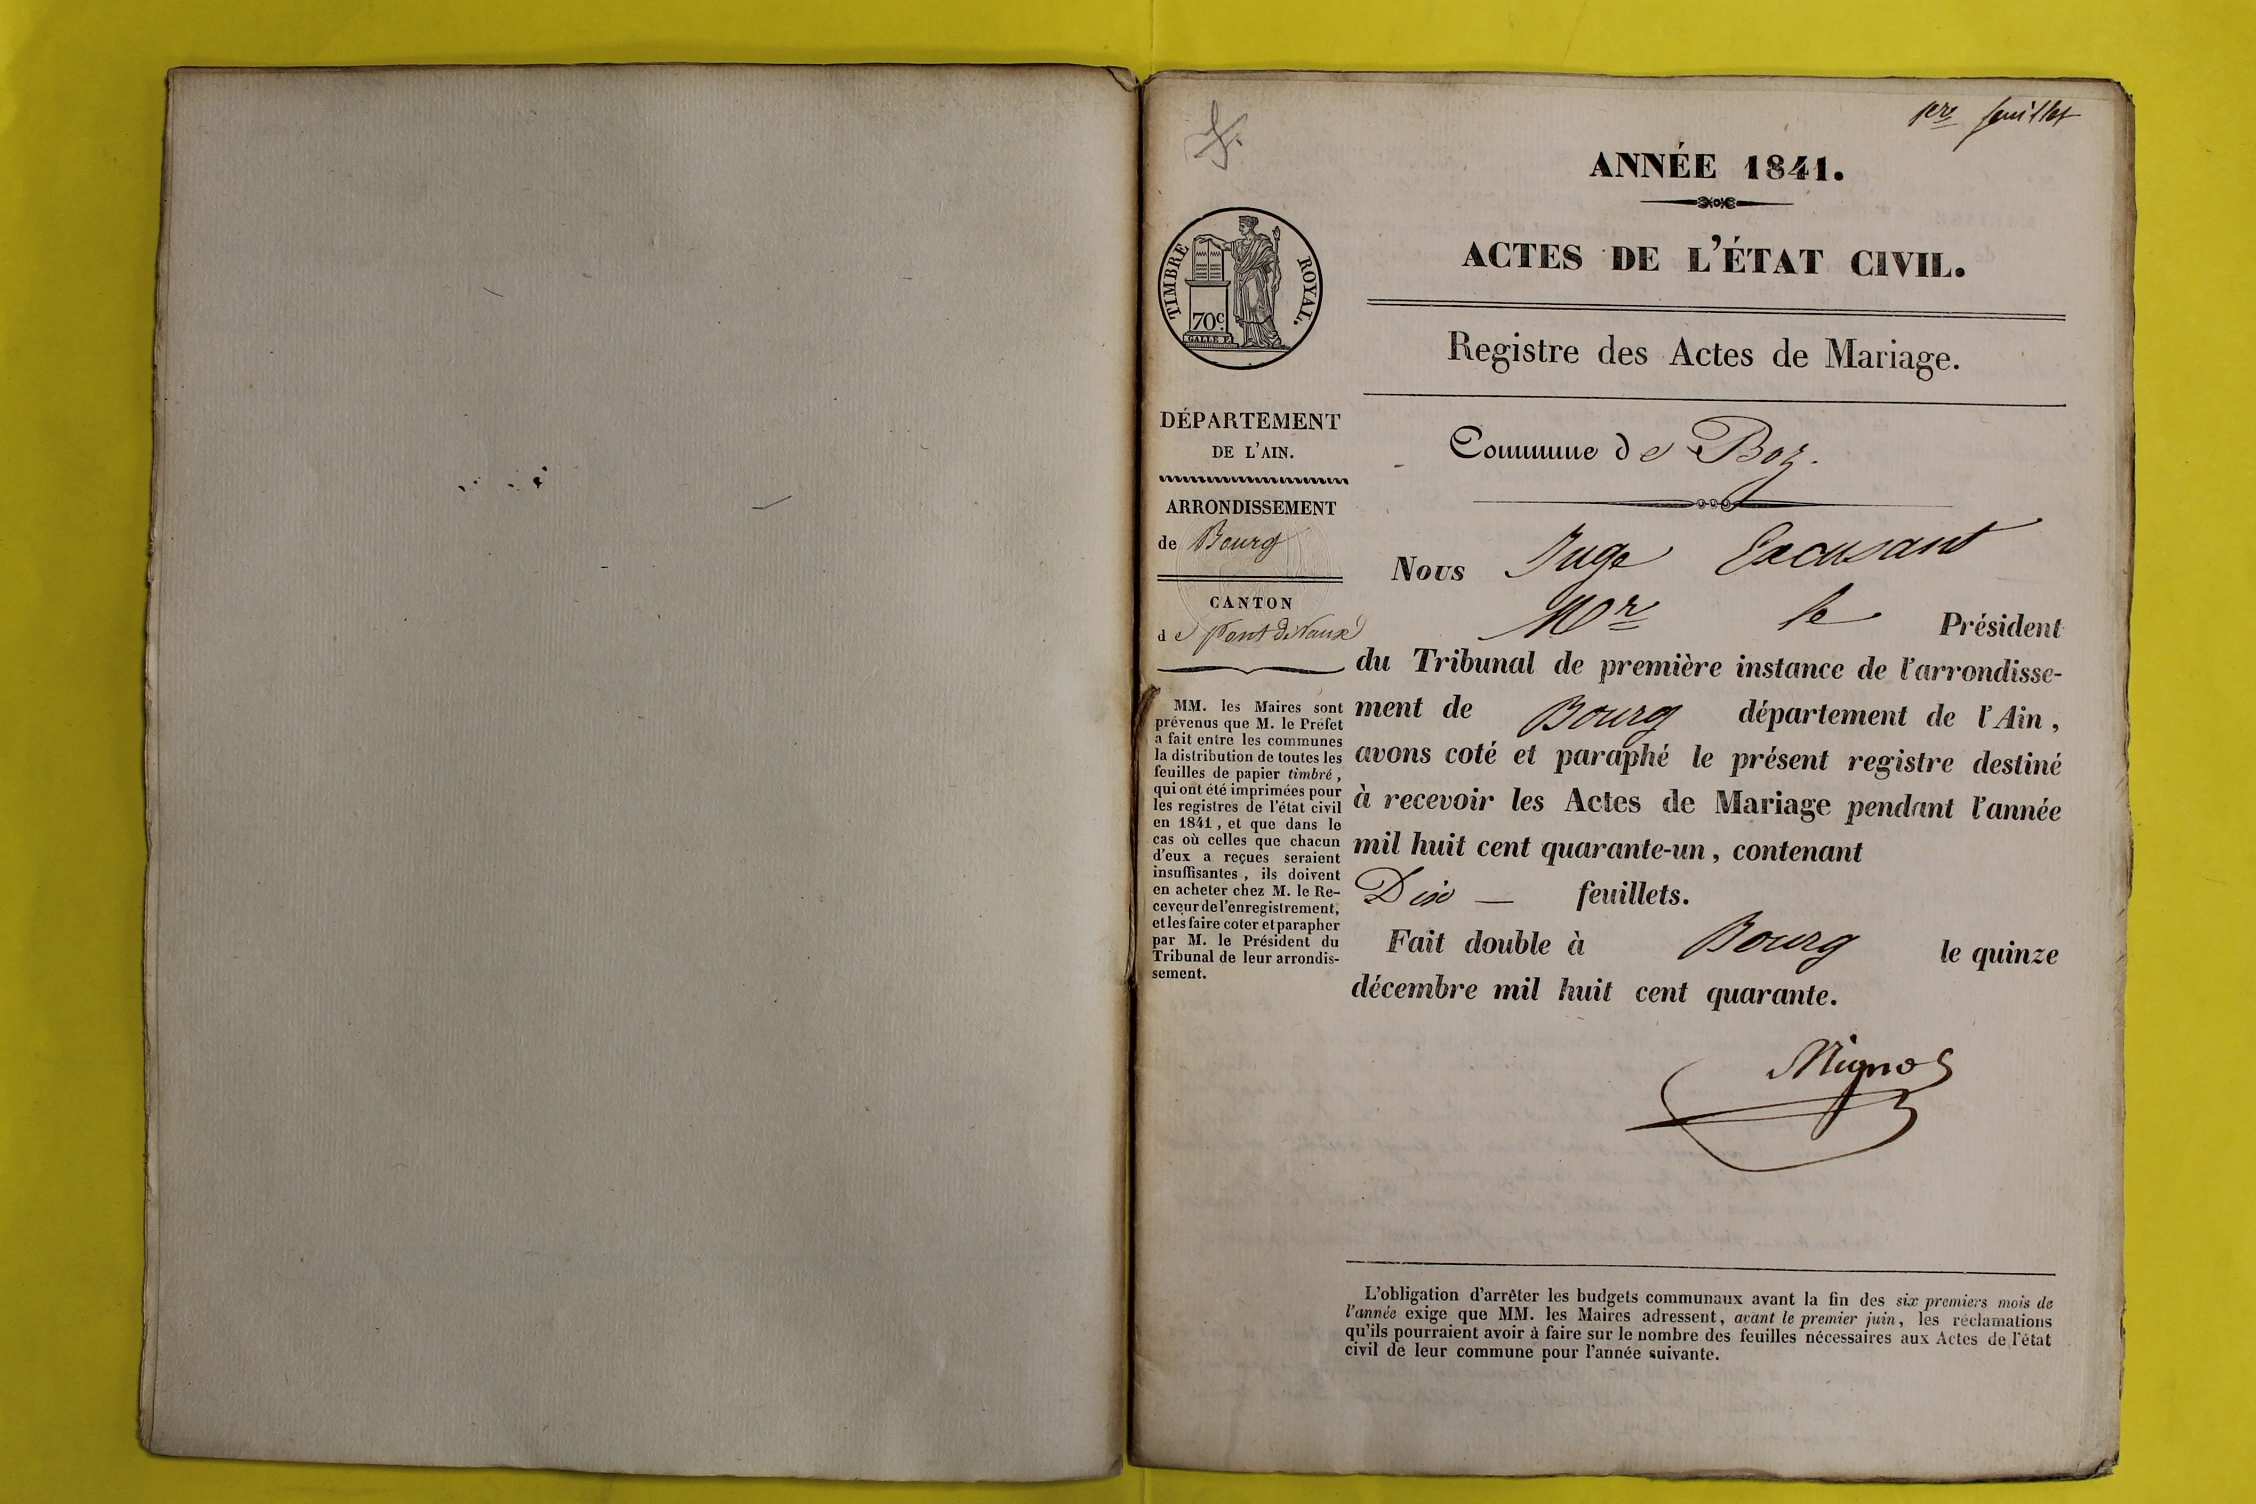 1ere feuillet
ANNÉE 1841.
ACTES DE L'ÉTAT CIVIL.
TIMBRE ROYAL.
70c.
GALLE F.
Registre des Actes de Mariage.
DÉPARTEMENT
DE L'AIN.
ARRONDISSEMENT
de Bourg
CANTON
de Pont de Vaux
MM. les Maires sont
prévenus que M. le Préfet
a fait entre les communes
la distribution de toutes les
feuilles de papier timbré,
qui ont été imprimées pour
les registres de l'état civil
en 1841, et que dans le
cas où celles que chacun
d'eux a reçues seraient
insuffisantes, ils doivent
en acheter chez M. le Re-
ceveur de l'enregistrement,
et les faire coter et parapher
par M. le Président du
Tribunal de leur arrondis-
sement.
Commune de Boz.
Nous Juge Excusant
Mr le Président
du Tribunal de première instance de l'arrondisse-
ment de Bourg département de l'Ain,
avons coté et paraphé le présent registre destiné
à recevoir les Actes de Mariage pendant l'année
mil huit cent quarante-un, contenant
Dix — feuillets.
Fait double à Bourg le quinze
décembre mil huit cent quarante.
Mignot
L'obligation d'arrêter les budgets communaux avant la fin des six premiers mois de
l'année exige que MM. les Maires adressent, avant le premier juin, les réclamations
qu'ils pourraient avoir à faire sur le nombre des feuilles nécessaires aux Actes de l'état
civil de leur commune pour l'année suivante.